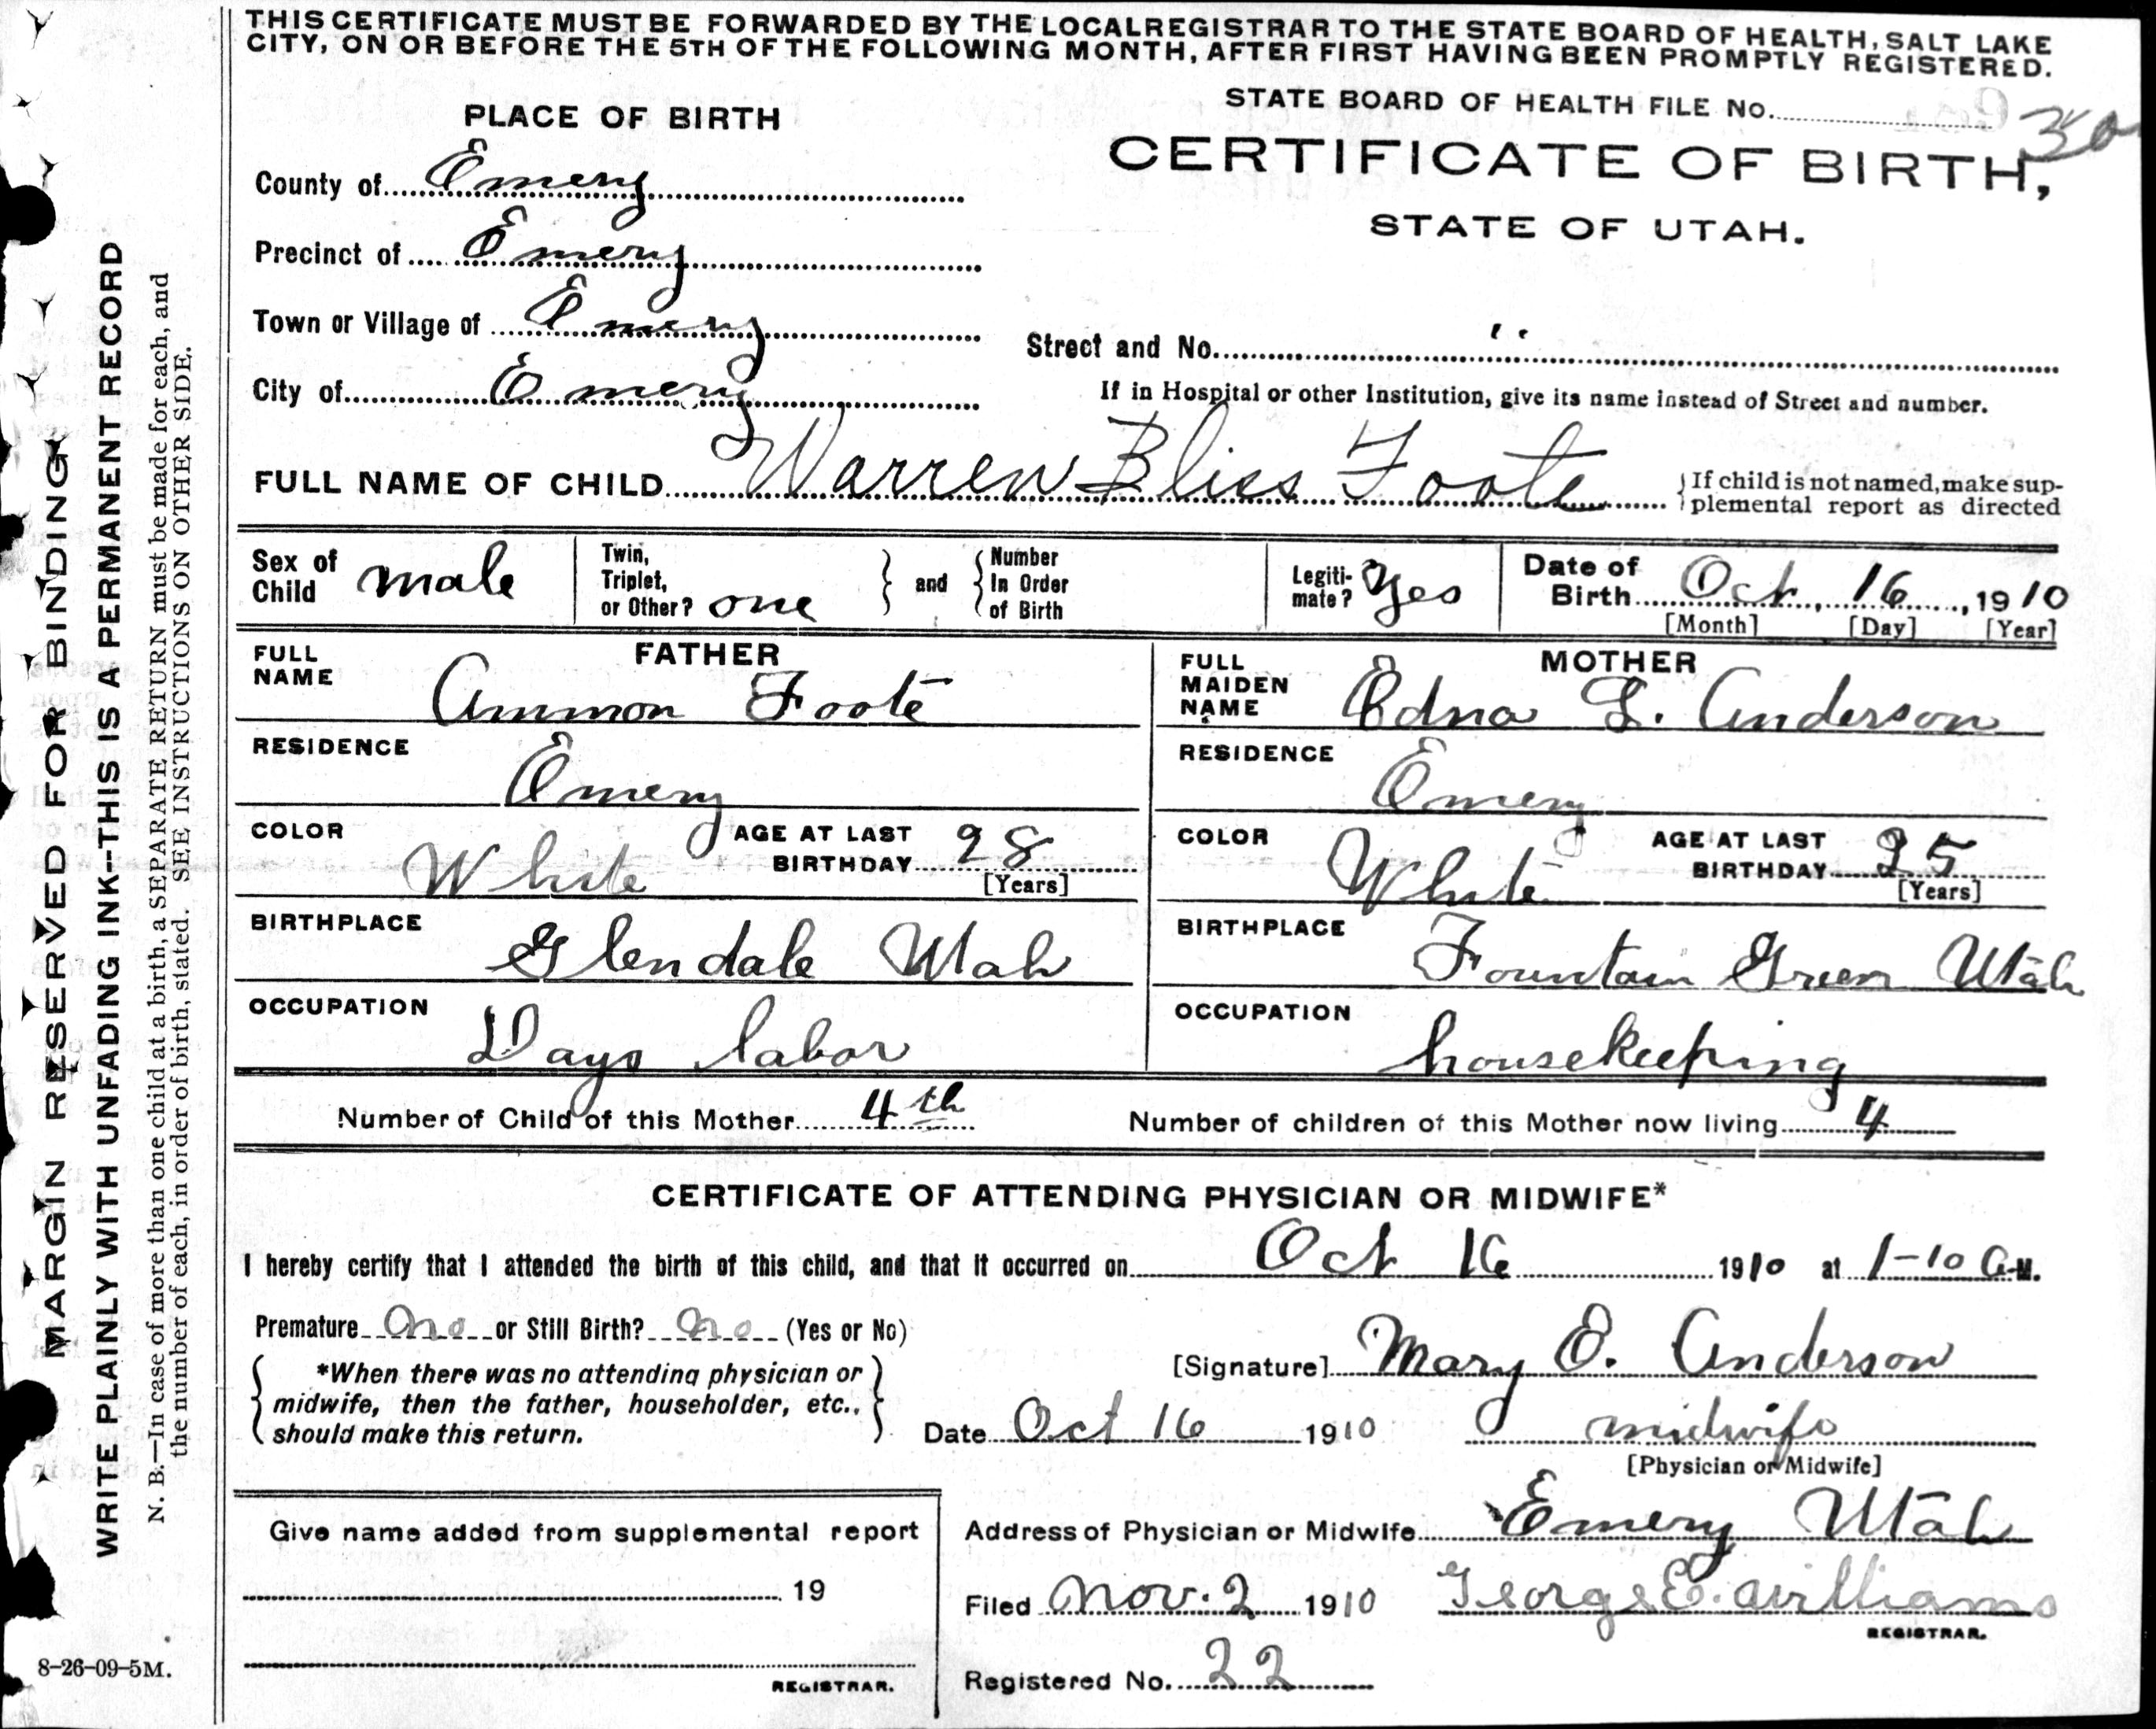 THIS CERTIFICATE MUST BE FORWARDED BY THE LOCAL REGISTRAR TO THE STATE BOARD OF HEALTH, SALT LAKE
CITY, ON OR BEFORE THE 5TH OF THE FOLLOWING MONTH, AFTER FIRST HAVING BEEN PROMPTLY REGISTERED.
STATE BOARD OF HEALTH FILE No.
30
PLACE OF BIRTH
CERTIFICATE OF BIRTH,
STATE OF UTAH.
County of Emery
Precinct of Emery
Town or Village of Emery
Street and No. "
City of Emery
If in Hospital or other Institution, give its name instead of Street and number.
FULL NAME OF CHILD Warren Bliss Foote {If child is not named, make sup-
plemental report as directed
Sex of Child male
Twin, Triplet, or Other? one } and { Number In Order of Birth
Legiti-mate? Yes
Date of Birth Oct, 16, 1910
[Month] [Day] [Year]
FATHER
FULL NAME Ammon Foote
MOTHER
FULL MAIDEN NAME Edna L. Anderson
RESIDENCE Emery
RESIDENCE Emery
COLOR White AGE AT LAST BIRTHDAY 28 [Years]
COLOR White AGE AT LAST BIRTHDAY 25 [Years]
BIRTHPLACE Glendale Utah
BIRTHPLACE Fountain Green Utah
OCCUPATION Days labor
OCCUPATION housekeeping
Number of Child of this Mother 4th Number of children of this Mother now living 4
CERTIFICATE OF ATTENDING PHYSICIAN OR MIDWIFE*
I hereby certify that I attended the birth of this child, and that it occurred on Oct 16 1910 at 1-10 a.M.
Premature no or Still Birth? no (Yes or No)
*When there was no attending physician or
midwife, then the father, householder, etc.,
should make this return.
[Signature] Mary E. Anderson
Date Oct 16 1910 midwife
[Physician or Midwife]
Give name added from supplemental report
19
REGISTRAR.
Address of Physician or Midwife Emery Utah
Filed Nov. 2 1910 George E. Williams
REGISTRAR.
Registered No. 22
8-26-09-5M.
MARGIN RESERVED FOR BINDING
WRITE PLAINLY WITH UNFADING INK--THIS IS A PERMANENT RECORD
N. B.—In case of more than one child at a birth, a SEPARATE RETURN must be made for each, and
the number of each, in order of birth, stated. SEE INSTRUCTIONS ON OTHER SIDE.